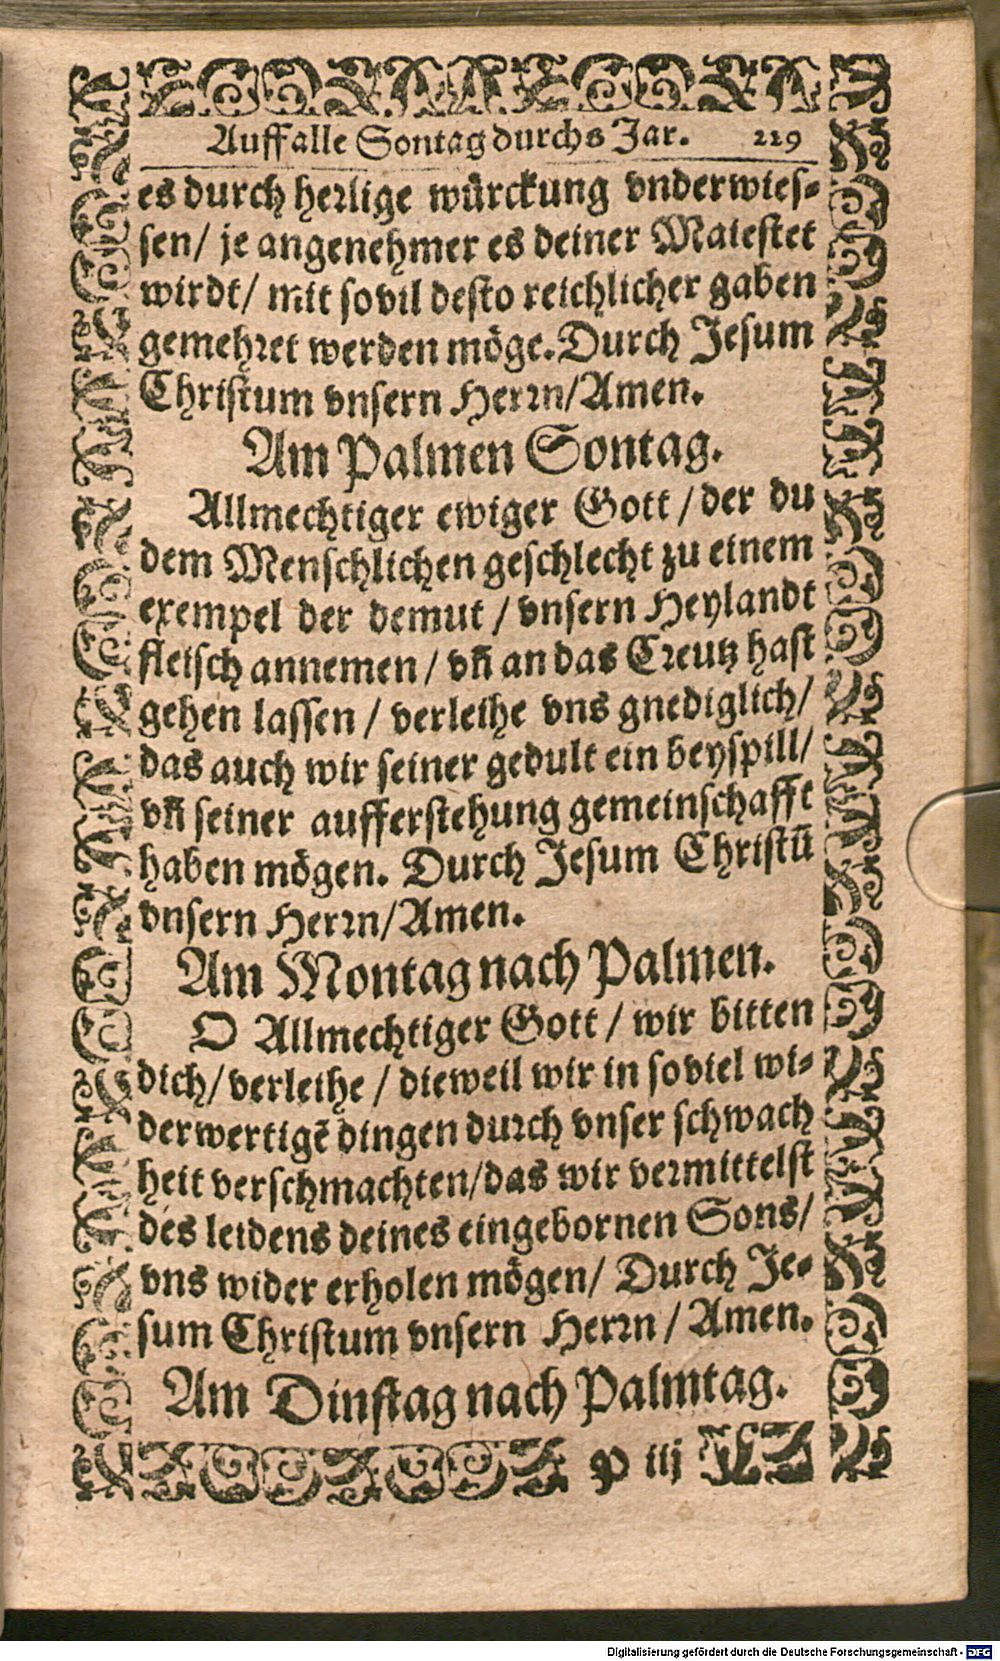 Auff alle Sontag durchs Jar. 219
es durch heilige würckung vnderwies-
sen/ je angenehmer es deiner Maiestet
wirdt/ mit sovil desto reichlicher gaben
gemehret werden möge. Durch Jesum
Christum vnsern Herrn/Amen.
Am Palmen Sontag.
Allmechtiger ewiger Gott/der du
dem Menschlichen geschlecht zu einem
exempel der demut / vnsern Heylandt
fleisch annemen / vñ an das Creutz hast
gehen lassen / verleihe vns gnediglich/
das auch wir seiner gedult ein beyspill/
vñ seiner aufferstehung gemeinschafft
haben mögen. Durch Jesum Christū
vnsern Herrn/Amen.
Am Montag nach Palmen.
O Allmechtiger Gott / wir bitten
dich/ verleihe / dieweil wir in soviel wi-
derwertigē dingen durch vnser schwach
heit verschmachten/das wir vermittelst
des leidens deines eingebornen Sons/
vns wider erholen mögen/ Durch Je-
sum Christum vnsern Herrn / Amen.
Am Dinstag nach Palmtag.
P iij
Digitalisierung gefördert durch die Deutsche Forschungsgemeinschaft - DFG